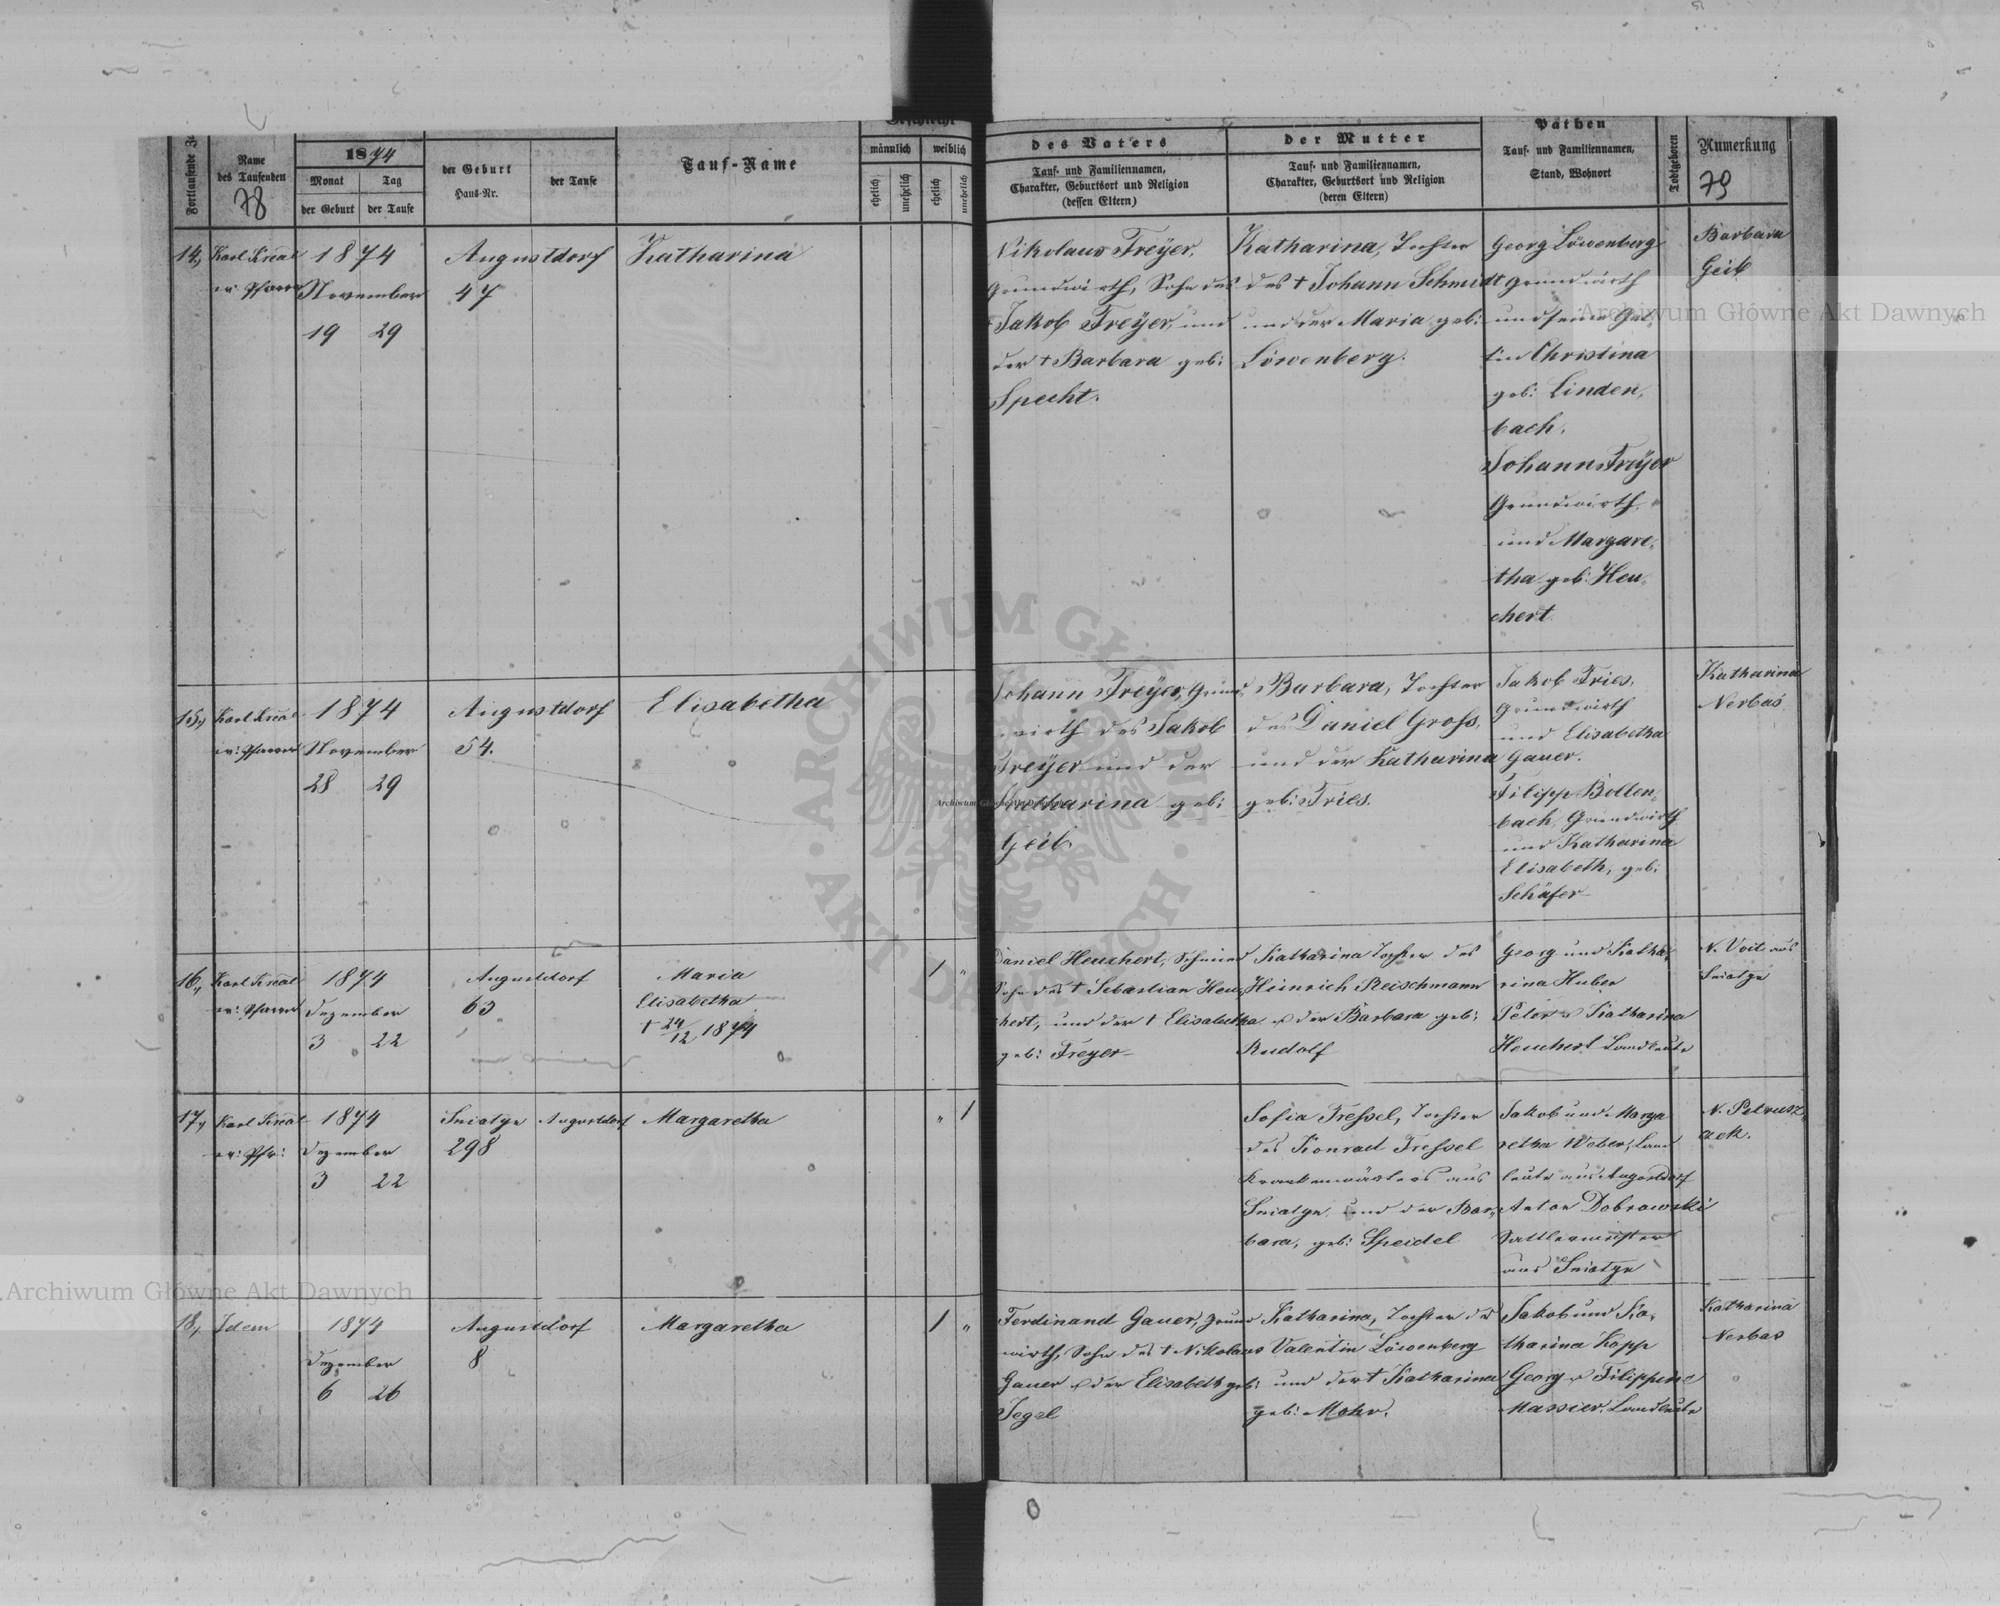 Fortlaufende
Name
des Taufenden
78
1874
Monat
Tag
der Geburt
der Taufe
der Geburt
Haus-Nr.
der Taufe
Tauf-Name
Geschlecht
männlich
weiblich
ehelich
unehelich
ehelich
unehelich
des Vaters
Tauf- und Familiennamen,
Charakter, Geburtsort und Religion
(dessen Eltern)
der Mutter
Tauf- und Familiennamen,
Charakter, Geburtsort und Religion
(deren Eltern)
Pathen
Tauf- und Familiennamen,
Stand, Wohnort
Todtgeboren
Anmerkung
79
14,
Karl
Pfarrer
1874
November
19 29
Augustdorf
47
Katharina
Nikolaus Freÿer,
Grundwirth, Sohn des
Jakob Freÿer, und
der † Barbara geb:
Specht.
Katharina, Tochter
des † Johann Schmidt
und der Maria geb:
Löwenberg.
Georg Löwenberg
Grundwirth
und seine Gat-
tin Christina
geb: Linden,
bach.
Johann Freÿer
Grundwirth
und Margare-
tha geb: Heu-
chert.
Barbara
Geib
15,
Karl
Pfarrer
1874
November
28 29
Augustdorf
54.
Elisabetha
Johann Freÿer, Grund,
wirth des Jakob
Freÿer und der
Katharina geb:
Geib.
Barbara, Tochter
des Daniel Gross,
und der Katharina
geb: Fries.
Jakob Fries,
Grundwirth
und Elisabetha
Gauer.
Filipp Bollen,
bach, Grundwirth
und Katharina
Elisabeth, geb:
Schäfer
Katharina
Nerbas
16,
Karl
Pfarrer
1874
Dezember
3 22
Augustdorf
63
Maria
Elisabetha
† 24/12 1874
1 "
Daniel Heuchert, Schmied
Sohn des † Sebastian Heu,
chert, und der † Elisabetha
geb: Freyer
Katharina Tochter des
Heinrich Reischmann
u der Barbara geb:
Rudolf
Georg und Katha,
rina Huber
Peter u Katharina
Heuchert Landleute
N. Voit aus
Sniatyn
17,
Karl
ev: Pfr:
1874
Dezember
3 22
Sniatyn
298
Augustdorf
Margaretha
" 1
Sofia Fressel, Tochter
des Konrad Fressel
Krankenwärters aus
Sniatyn und der Bar,
bara, geb: Speidel
Jakob und Marga
retha Weber, Land
leute aus Augustdorf
Anton Dobrowski
Sattlermeister
aus Sniatyn
N. Petrusz,
ack.
18,
Idem
1874
Dezember
6 26
Augustdorf
8
Margaretha
1 "
Ferdinand Gauer, Grund
wirth, Sohn des † Nikolaus
Gauer u der Elisabeth geb:
Jegel
Katharina, Tochter des
Valentin Löwenberg
und der † Katharina
geb: Mohr.
Jakob und Ka,
tharina Kopp
Georg u Filippine
Massier, Landleute
Katharina
Nerbas
Archiwum Główne Akt Dawnych
Archiwum Główne Akt Dawnych
Archiwum Główne Akt Dawnych